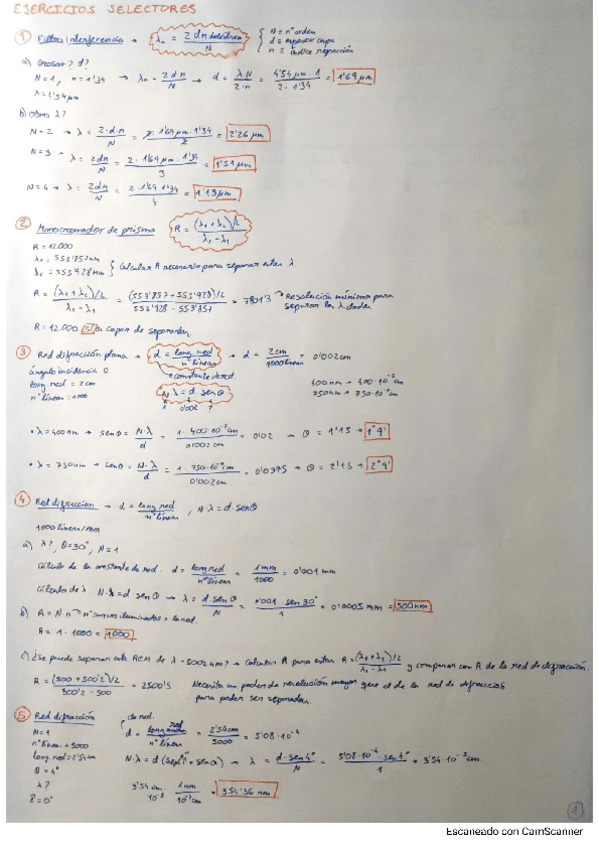 EJERCICIOS SELECTORES
① Filtro interferencia → λn = 2dn / N { N = nº orden
d = espesor capa
n = índice refracción
a) Grosor? d?
N=1, n=1'34 → λn = 2·d·n / N → d = λ·N / 2·n = 4'54 μm · 1 / 2 · 1'34 = 1'69 μm
λ = 4'54 μm
b) Otras λ?
N=2 → λ = 2·d·n / N = 2 · 1'69 μm · 1'34 / 2 = 2'26 μm
N=3 → λ = 2dn / N = 2 · 1'69 μm · 1'34 / 3 = 1'51 μm
N=4 → λ = 2dn / N = 2 · 1'69 · 1'34 / 4 = 1'13 μm
② Monocromador de prisma R = (λ1 + λ2)/2 / λ2 − λ1
R = 12.000
λ1 = 553'857 nm
λ2 = 553'928 nm } Calcular R necesario para separar estas λ
R = (λ1 + λ2)/2 / λ2 − λ1 = (553'857 + 553'928)/2 / 553'928 − 553'857 = 7801'3 → Resolución mínima para
separar las λ dadas
R = 12.000 Sí es capaz de separarlas
③ Red difracción plana → d = long. red / nº líneas → d = 2cm / 1000 líneas = 0'002 cm
ángulo incidencia 0 → constante de red.
long red = 2cm N λ = d senθ 400 nm → 400·10⁻⁷ cm
nº líneas = 1000 1 0'002 ? 750 nm → 750·10⁻⁷ cm
• λ = 400 nm → senθ = N·λ / d = 1 · 400·10⁻⁷ cm / 0'002 cm = 0'02 → θ = 1'15 → 1º 9'
• λ = 750 nm → senθ = N·λ / d = 1 · 750·10⁻⁷ cm / 0'002 cm = 0'0375 → θ = 2'15 → 2º 9'
④ Red difracción → d = long red / nº líneas , N·λ = d·senθ
1000 líneas/mm
a) λ?, θ=30°, N=1
Cálculo de la constante de red. d = long red / nº líneas = 1mm / 1000 = 0'001 mm
Cálculo de λ N·λ = d senθ → λ = d·senθ / N = 0'001 · sen 30° / 1 = 0'0005 mm = 500 nm
b) R = N·n → nº surcos iluminados x la red.
R = 1 · 1000 = 1000
c) ¿Se puede separar esta REM de λ = 500'2 nm? → Calcular R para estas R = (λ1 + λ2)/2 / λ2 − λ1 y comparar con R de la red de difracción.
R = (500 + 500'2)/2 / 500'2 − 500 = 2500'5 Necesita un poder de resolución mayor que el de la red de difracción
para poder ser separadas.
⑤ Red difracción cte red.
N=1 d = long red / nº líneas = 2'54 cm / 5000 = 5'08·10⁻⁴
nº líneas = 5000
long red = 2'54 cm N·λ = d (sen i + senθ) → λ = d·sen4° / N = 5'08·10⁻⁴ · sen4° / 1 = 3'54·10⁻⁵ cm
θ = 4°
λ? 3'54 cm · 10⁻⁵ 1 nm / 10⁻⁷ cm = 354'36 nm
i = 0°
1
Escaneado con CamScanner